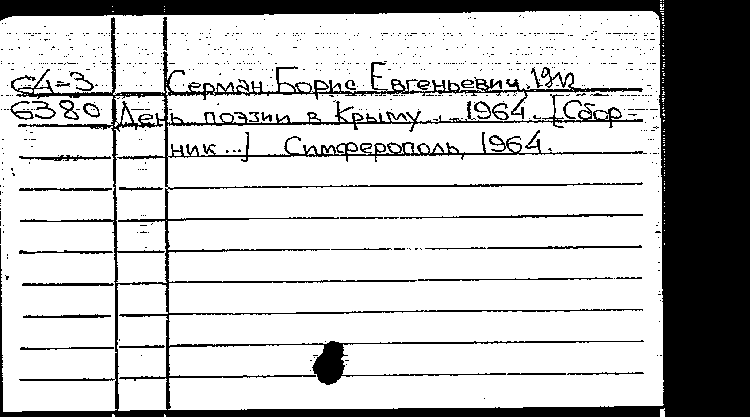 64-3 Серман, Борис Евгеньевич, 1912
6380 День поэзии в Крыму. 1964. [Сбор-
ник...] Симферополь, 1964.